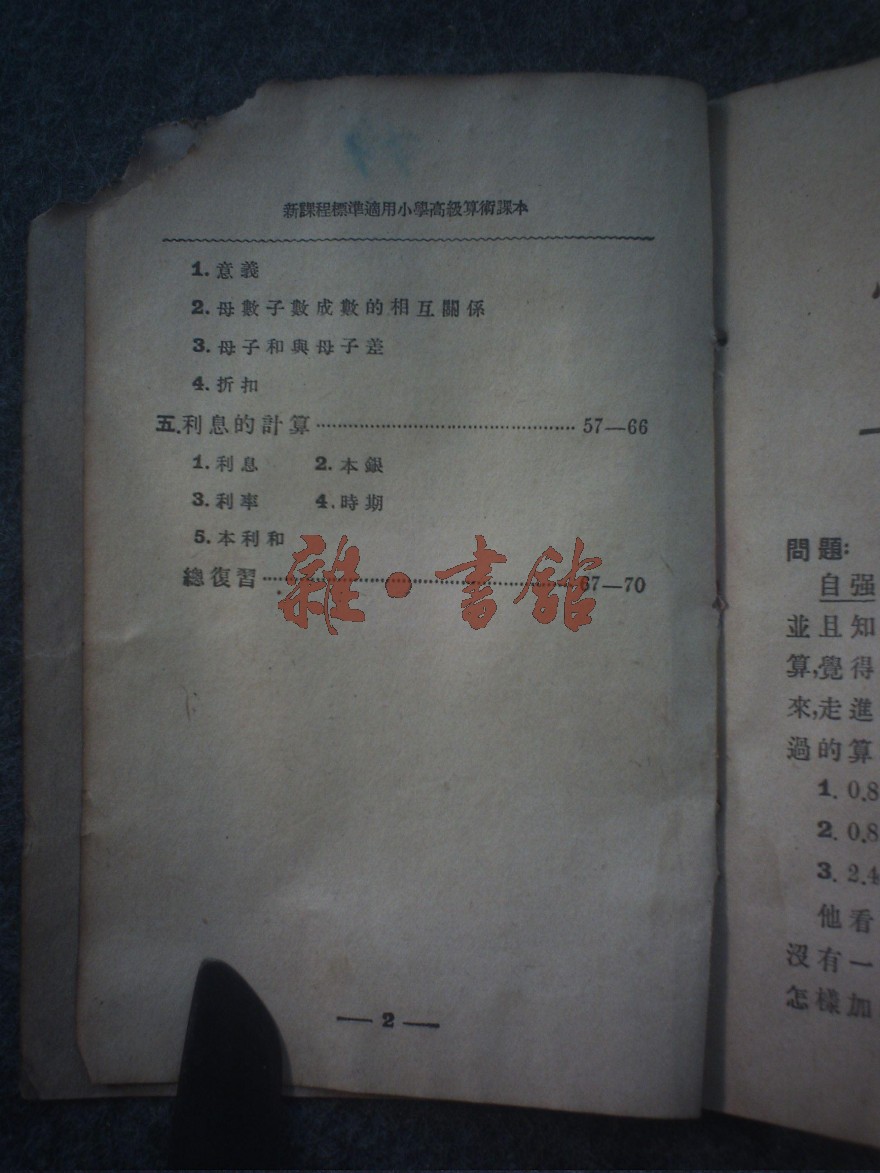 新課程標準適用小學高級算術課本
1. 意義
2. 母數子數成數的相互關係
3. 母子和與母子差
4. 折扣
五. 利息的計算 57—66
1. 利息 2. 本銀
3. 利率 4. 時期
5. 本利和
總復習 67—70
雜·書館
— 2 —
問題:
自强
並且知
算,覺得
來,走進
過的算
1. 0.8
2. 0.8
3. 2.4
他看
沒有一
怎樣加